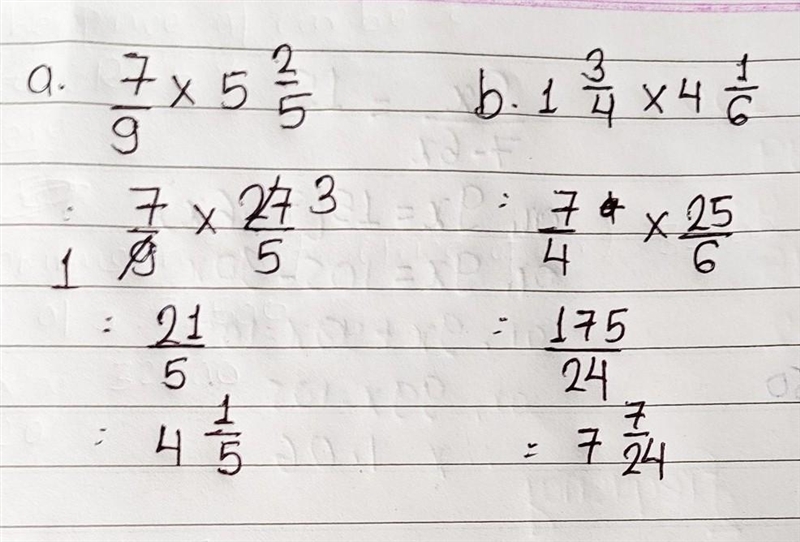 a. 7/9 x 5 2/5
: 7/9 x 27/5 3
1
= 21/5
= 4 1/5
b. 1 3/4 x 4 1/6
: 7/4 x 25/6
= 175/24
= 7 7/24